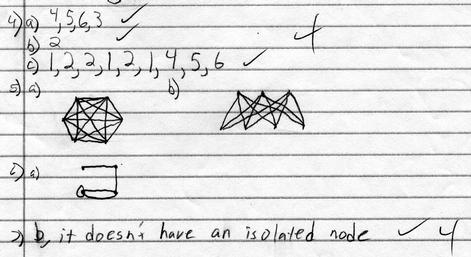 4) a) 4,5,6,3 ✓
b) 2 ✓
c) 1,2,2,1,2,1,4,5,6 ✓ 4
5) a) b)
6) a)
7) b, it doesn't have an isolated node ✓ 4